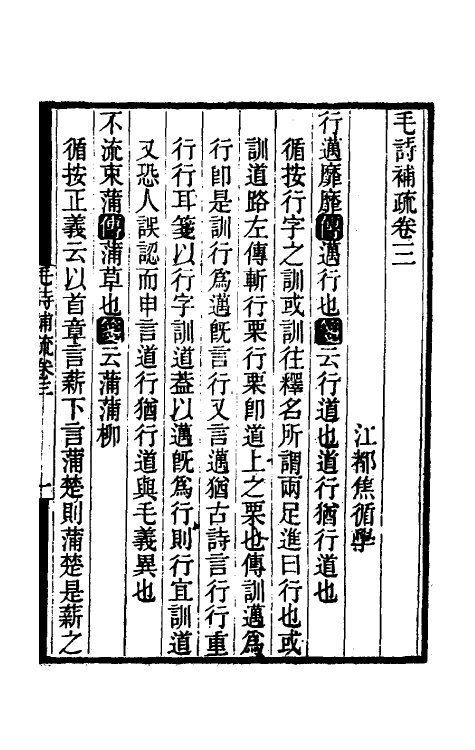 毛詩補疏卷三
江都焦循學
行邁靡靡傳邁行也箋云行道也道行猶行道也
循按行字之訓或訓往釋名所謂兩足進曰行也或
訓道路左傳斬行栗行栗卽道上之栗也傳訓邁爲
行卽是訓行爲邁旣言行又言邁猶古詩言行行重
行行耳箋以行字訓道蓋以邁旣爲行則行宜訓道
又恐人誤認而申言道行猶行道與毛義異也
不流束蒲傳蒲草也箋云蒲蒲柳
循按正義云以首章言薪下言蒲楚則蒲楚是薪之
毛詩補疏卷三
一